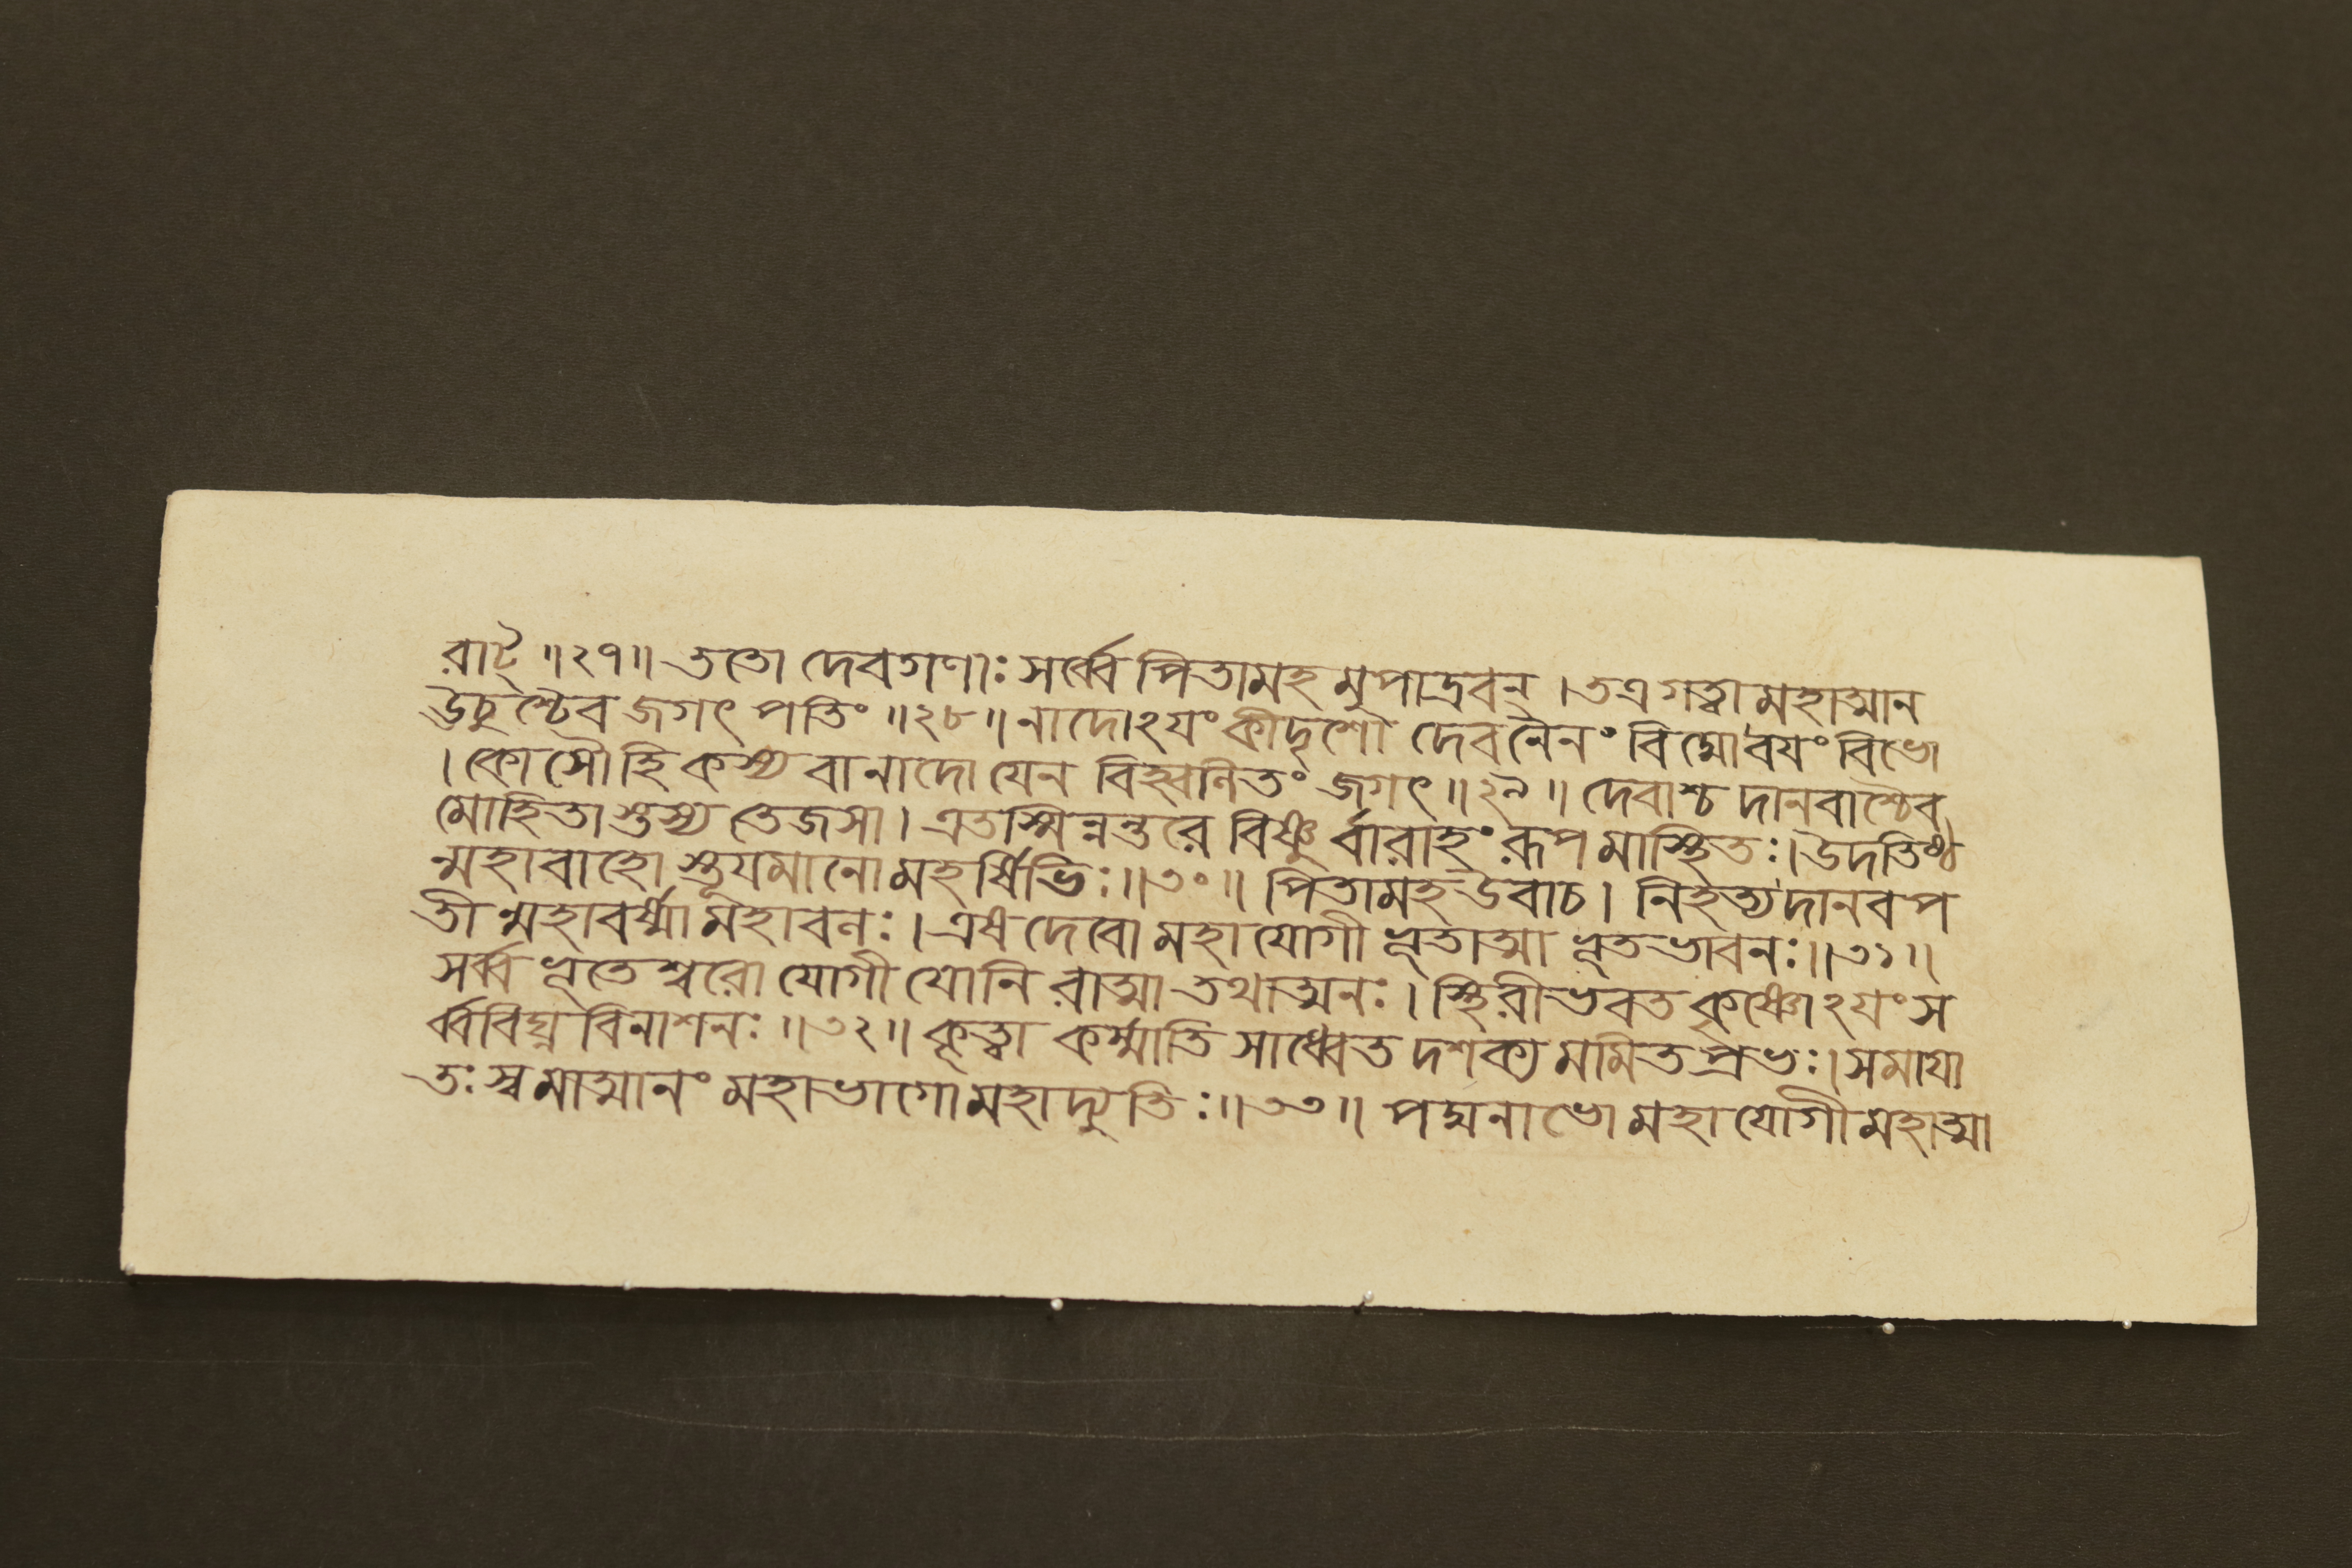 রাট্ ॥২৭॥ ততো দেবগণাঃ সর্ব্বে পিতামহ মুপাদ্রবন্ । তত্র গত্বা মহাত্মান
ঊচুশ্চৈব জগৎ পতিং ॥২৮॥ নাদোঽয়ং কীদৃশো দেব নৈনং বিদ্মো বয়ং বিভো
। কোসৌ হি কস্য বা নাদো যেন বিহ্বলিতং জগৎ ॥২৯॥ দেবাশ্চ দানবাশ্চৈব
মোহিতাস্তস্য তেজসা । এতস্মিন্নন্তরে বিষ্ণু র্বারাহং রূপ মাস্থিতঃ । উদতিষ্ঠ
ন্মহাবাহো স্তূয়মানো মহর্ষিভিঃ ॥৩০॥ পিতামহ উবাচ । নিহত্য দানব প
তীন্মহাবর্ষ্মা মহাবলঃ । এষ দেবো মহাযোগী ভূতাত্মা ভূতভাবনঃ ॥৩১॥
সর্ব্ব ভূতেশ্বরো যোগী যোনি রাত্মা তথাত্মনঃ । স্থিরীভবত কৃষ্ণোঽয়ং স
র্ব্ববিঘ্ন বিনাশনঃ ॥৩২॥ কৃত্বা কর্ম্মাতি সাধ্বেত দশক্য মমিতপ্রভঃ । সমায়া
তঃ স্বমাত্মানং মহাভাগো মহাদ্যুতিঃ ॥৩৩॥ পদ্মনাভো মহাযোগী মহাত্মা